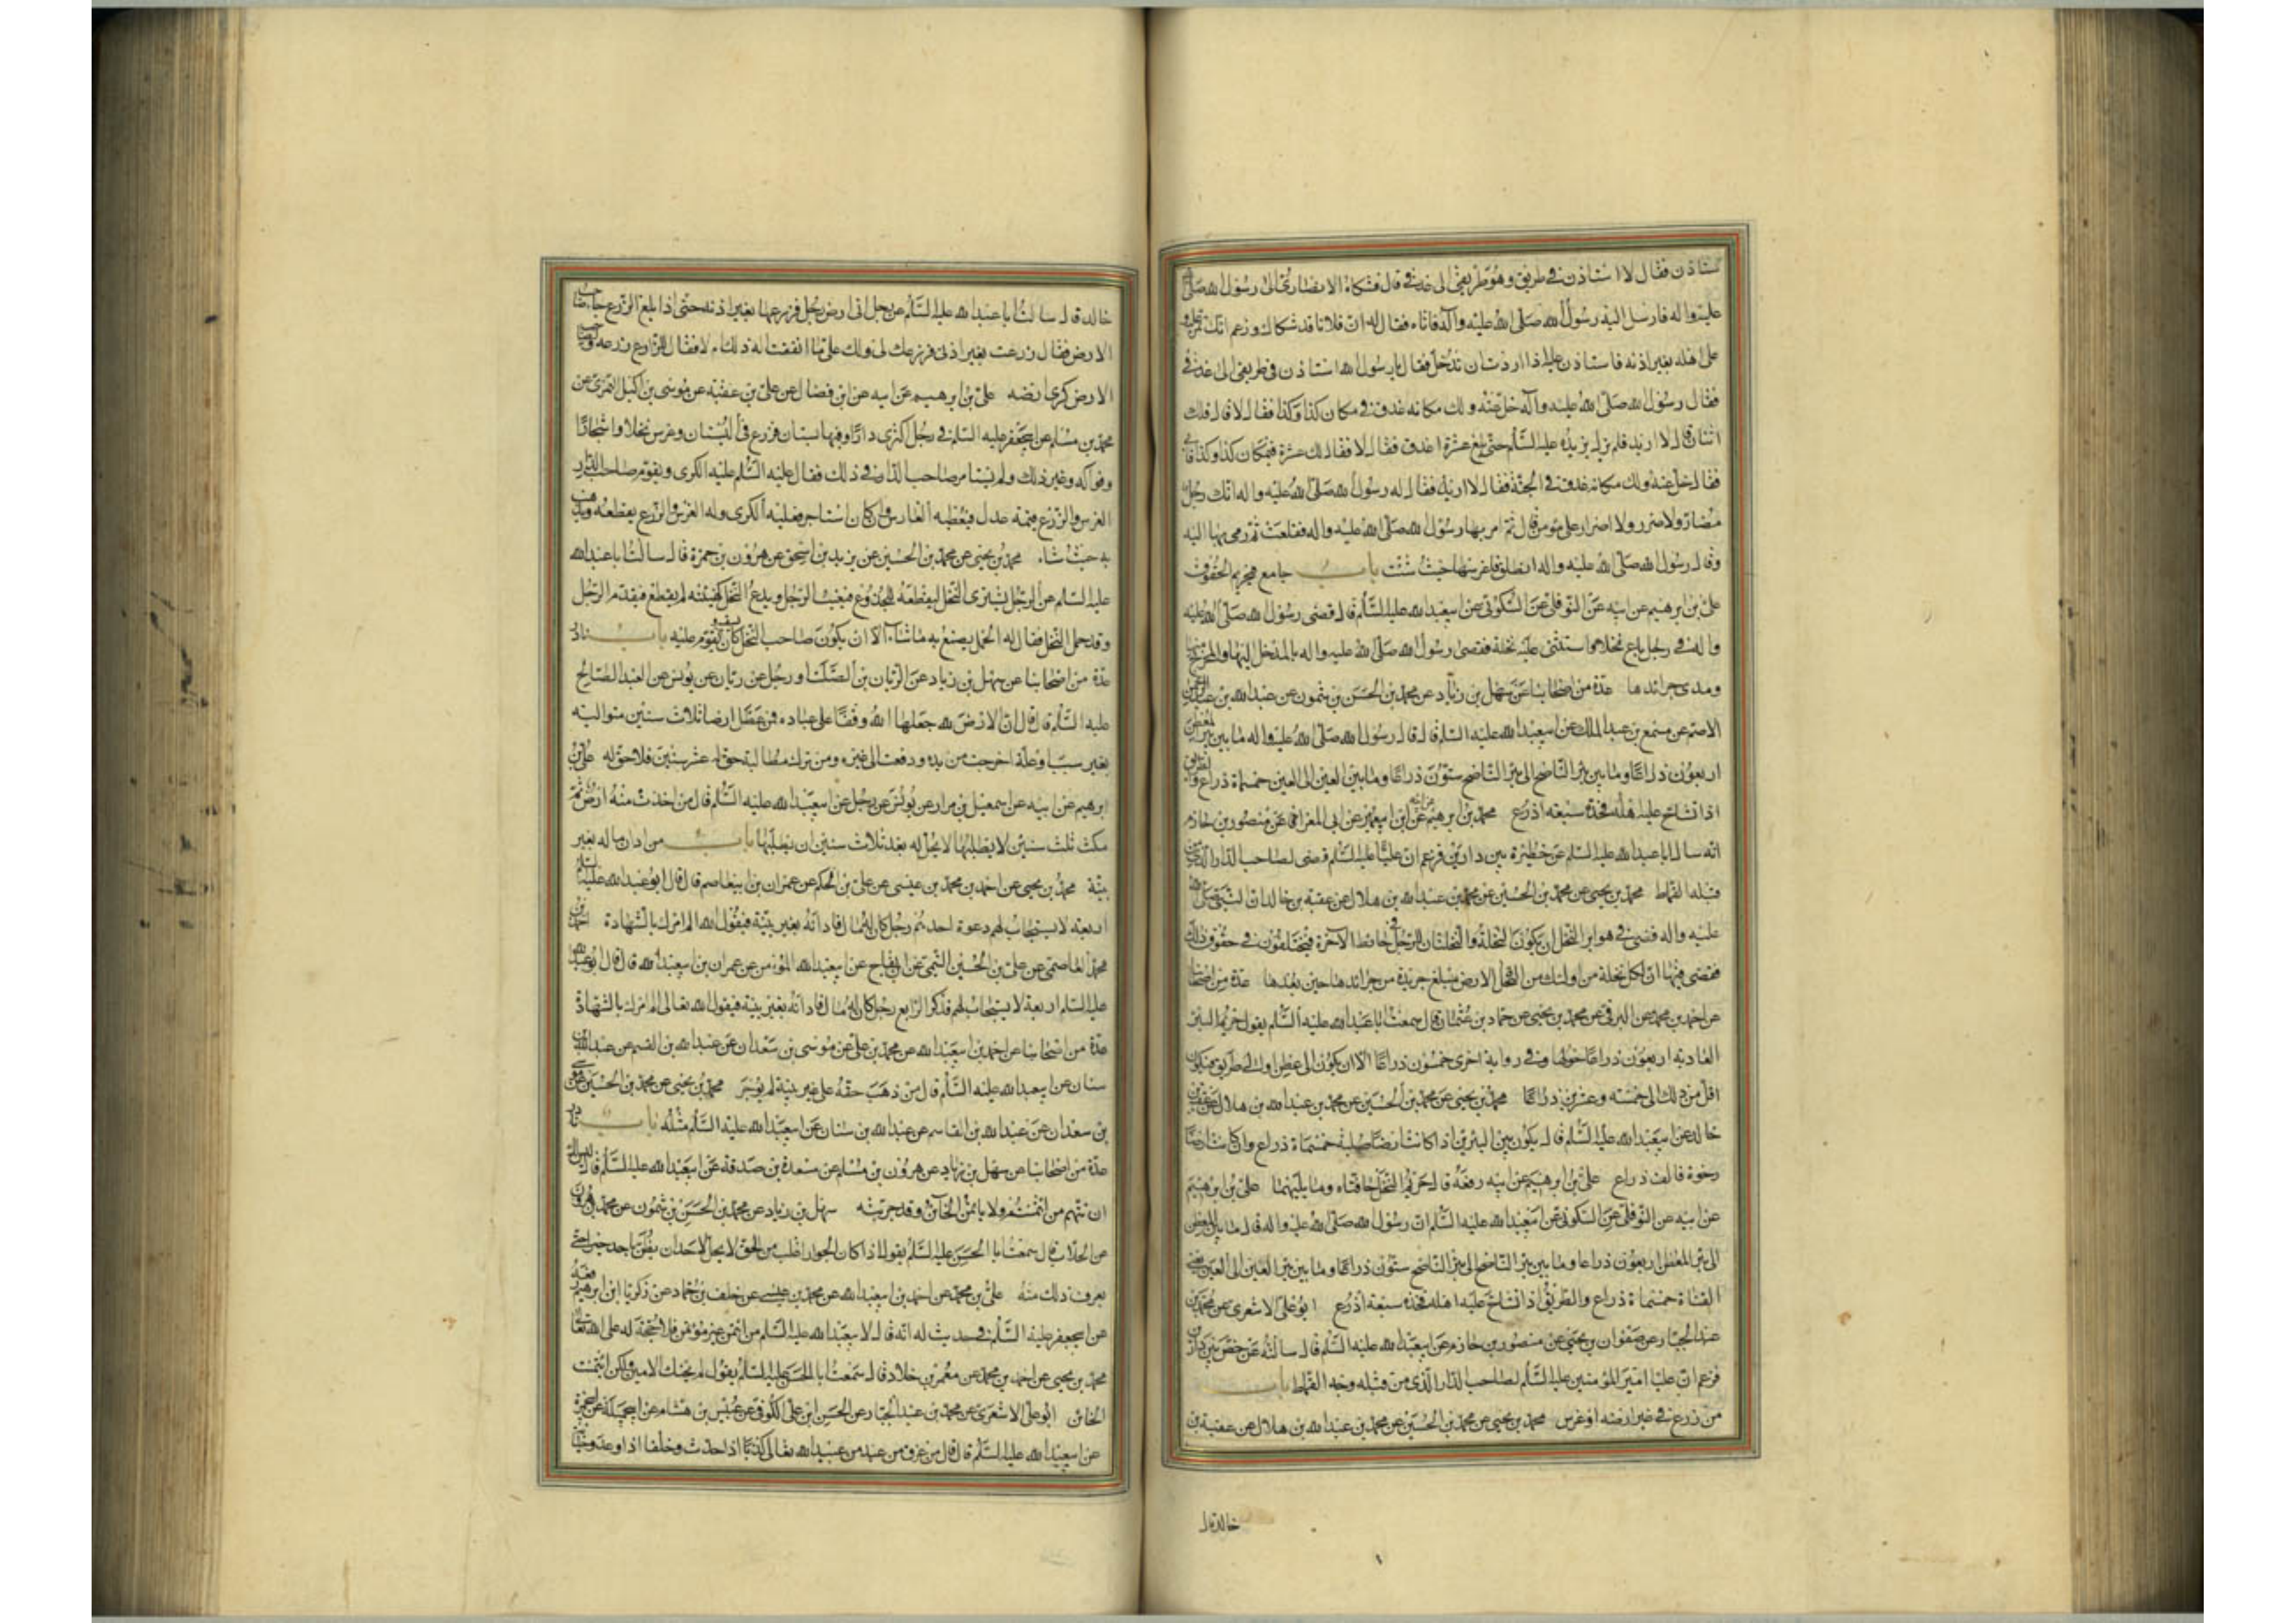 ستاذن فقال لا استاذن في طريق وهو طريقي الى عذقي قال فشكاه الانصاري الى رسول الله صلى الله
عليه واله فارسل اليه رسول الله صلى الله عليه وآله فاتاه فقال له ان فلانا قد شكاك وزعم انك تمر عليه و
على اهله بغير اذنه فاستاذن عليه اذا اردت ان تدخل فقال يا رسول الله استاذن في طريقي الى عذقي
فقال رسول الله صلى الله عليه وآله خل عنه ولك مكانه عذق في مكان كذا وكذا فقال لا قال فلك
اثنان قال لا اريد فلم يزل يزيده عليه السلام حتى بلغ عشرة اعذق فقال لا فقال لك عشرة في مكان كذا وكذا فابى
فقال خل عنه ولك مكانه عذق في الجنة فقال لا اريد فقال له رسول الله صلى الله عليه واله انك رجل
مضار ولا ضرر ولا اضرار على مؤمن قال ثم امر بها رسول الله صلى الله عليه واله فقلعت ثم رمى بها اليه
وقال رسول الله صلى الله عليه واله انطلق فاغرسها حيث شئت باب جامع في حريم الحقوق
علي بن ابرهيم عن ابيه عن النوفلي عن السكوني عن ابيعبد الله عليه السلام قال قضى رسول الله صلى الله عليه
واله في رجل باع نخلا واستثنى عليه نخلة فقضى رسول الله صلى الله عليه واله بالمدخل اليها والمخرج منها
ومدى جرائدها عدة من اصحابنا عن سهل بن زياد عن محمد بن الحسن بن شمون عن عبد الله بن عبد الرحمن
الاصم عن مسمع بن عبد الملك عن ابيعبد الله عليه السلم قال قال رسول الله صلى الله عليه واله ما بين بئر المعطن
اربعون ذراعا وما بين بئر الناضح الى بئر الناضح ستون ذراعا وما بين العين الى العين خمسماة ذراع والطريق
اذا تشاح عليه اهله فحده سبعة اذرع محمد بن ابرهيم عن ابيه عن ابن ابيعمير عن ابي المغرا عن منصور بن حازم
انه سال ابا عبد الله عليه السلم عن حظيرة بين دارين فزعم ان عليا عليه السلم قضى لصاحب الدار الذي من
قبله القماط محمد بن يحيى عن محمد بن الحسين عن محمد بن عبد الله بن هلال عن عقبة بن خالد ان النبي صلى الله
عليه واله قضى في هواير النخل ان يكون النخلة والنخلتان للرجل في حائط الآخر فيختلفون في حقوق ذلك
فقضى فيها ان لكل نخلة من اولئك من النخل الارض مبلغ جريدة من جرائدها حين بعدها عدة من اصحابنا
عن احمد بن محمد عن البرقي عن محمد بن يحيى عن حماد بن عثمان قال سمعت ابا عبد الله عليه السلم يقول حريم البئر
العادية اربعون ذراعا حولها وفي رواية اخرى خمسون ذراعا الا ان يكون الى عطن او الى طريق فيكون
اقل من ذلك الى خمسه وعشرين ذراعا محمد بن يحيى عن محمد بن الحسين عن محمد بن عبد الله بن هلال عن عقبة بن
خالد عن ابيعبد الله عليه السلم قال يكون بين البئرين اذا كانت ارضا صلبة خمسماة ذراع وان كانت ارضا
رخوة فالف ذراع علي بن ابرهيم عن ابيه رفعه قال حريم النخل حافتاه وما يليهما علي بن ابرهيم
عن ابيه عن النوفلي عن السكوني عن ابيعبد الله عليه السلم ان رسول الله صلى الله عليه واله قال ما بين بئر المعطن
الى بئر المعطن اربعون ذراعا وما بين بئر الناضح الى بئر الناضح ستون ذراعا وما بين بئر العين الى العين يعني
القناة خمسماة ذراع والطريق اذا تشاح عليه اهله فحده سبعة اذرع ابو علي الاشعري عن محمد بن
عبد الجبار عن صفوان بن يحيى عن منصور بن حازم عن ابيعبد الله عليه السلم قال سالته عن خص بين دارين
فزعم ان عليا امير المؤمنين عليه السلم لصاحب الدار الذي من قبله وجه القماط باب
من زرع في غير ارضه او غرس محمد بن يحيى عن محمد بن الحسين عن محمد بن عبد الله بن هلال عن عقبة بن
خالد قال
خالد قال سالت ابا عبد الله عليه السلم عن رجل اتى ارض رجل فزرعها بغير اذنه حتى اذا بلغ الزرع جاء صاحب
الارض فقال زرعت بغير اذني فزرعك لي ولك على ما انفقت اله ذلك ام لا فقال للزارع زرعه ولصاحب
الارض كرى ارضه علي بن ابرهيم عن ابيه عن ابن فضال عن علي بن عقبة عن موسى بن اكيل النميري عن
محمد بن مسلم عن ابيجعفر عليه السلم في رجل اكترى دارا وفيها بستان فزرع في البستان وغرس نخلا واشجارا
وفواكه وغير ذلك ولم يستامر صاحب الدار في ذلك فقال عليه السلم عليه الكرى ويقوم صاحب الدار
الغرس والزرع قيمة عدل فيعطيه الغارس وان كان استاجر فعليه الكرى وله الغرس والزرع يقطعه ويذهب
به حيث شاء محمد بن يحيى عن محمد بن الحسين عن يزيد بن اسحق عن هرون بن حمزة قال سالت ابا عبد الله
عليه السلم عن الرجل يشترى النخل ليقطعه للجذوع فيغيب الرجل ويدع النخل كهيئته لم يقطع فيقدم الرجل
وقد حمل النخل فقال له الحمل يصنع به ما شاء الا ان يكون صاحب النخل كان يسقيه ويقوم عليه باب نادر
عدة من اصحابنا عن سهل بن زياد عن الريان بن الصلت او رجل عن ريان عن يونس عن العبد الصالح
عليه السلم قال قال ان الارض لله جعلها الله وقفا على عباده فمن عطل ارضا ثلاث سنين متوالية
بغير سبب او علة اخرجت من يده ودفعت الى غيره ومن ترك مطالبة حق له عشر سنين فلا حق له علي بن
ابرهيم عن ابيه عن اسمعيل بن مرار عن يونس عن رجل عن ابيعبد الله عليه السلم قال من اخذت منه ارض ثم
مكث ثلث سنين لا يطلبها لا يحل له بعد ثلاث سنين ان يطلبها باب من ادان ماله بغير
بينة محمد بن يحيى عن احمد بن محمد بن عيسى عن علي بن الحكم عن عمران بن ابيعاصم قال قال ابو عبد الله عليه السلم
اربعة لا يستجاب لهم دعوة احدهم رجل كان له مال فادانه بغير بينة فيقول الله الم امرك بالشهادة احمد بن
محمد العاصمي عن علي بن الحسين التيمي عن ابن بقاح عن ابيعبد الله المؤمن عن عمران بن ابيعبد الله قال قال ابو عبد الله
عليه السلم اربعة لا يستجاب لهم فذكر الرابع رجل كان له مال فادانه بغير بينة فيقول الله تعالى الم امرك بالشهادة
عدة من اصحابنا عن احمد بن ابيعبد الله عن محمد بن علي عن موسى بن سعدان عن عبد الله بن القسم عن عبد الله بن
سنان عن ابيعبد الله عليه السلم قال من ذهب حقه على غير بينة لم يوجر محمد بن يحيى عن محمد بن الحسين عن موسى
بن سعدان عن عبد الله بن القاسم عن عبد الله بن سنان عن ابيعبد الله عليه السلم مثله باب نادر
عدة من اصحابنا عن سهل بن زياد عن هرون بن مسلم عن مسعدة بن صدقة عن ابيعبد الله عليه السلم قال ليس لك
ان تتهم من ائتمنته ولا تاتمن الخائن وقد جربته سهل بن زياد عن محمد بن الحسن بن شمون عن محمد بن هرون
عن الجلاب قال سمعت ابا الحسن عليه السلم يقول اذا كان الجور اغلب من الحق لا يحل لاحد ان يظن باحد خيرا حتى
يعرف ذلك منه علي بن محمد عن احمد بن ابيعبد الله عن محمد بن عيسى عن خلف بن حماد عن زكريا ابن ابرهيم رفعه
عن ابيجعفر عليه السلم في حديث له انه قال لابيعبد الله عليه السلم من ائتمن غير مؤتمن فلا حجة له على الله تعالى
محمد بن يحيى عن احمد بن محمد عن معمر بن خلاد قال سمعت ابا الحسن عليه السلم يقول لم يخنك الامين ولكن ائتمنت
الخائن ابو علي الاشعري عن محمد بن عبد الجبار عن الحسن ابن علي الكوفي عن عبيس بن هشام عن ابيجميلة عن ابيحمزة
عن ابيعبد الله عليه السلم قال قال من عرف من عبد من عبيد الله تعالى كذبا اذا حدث وخلفا اذا وعد وخيانة